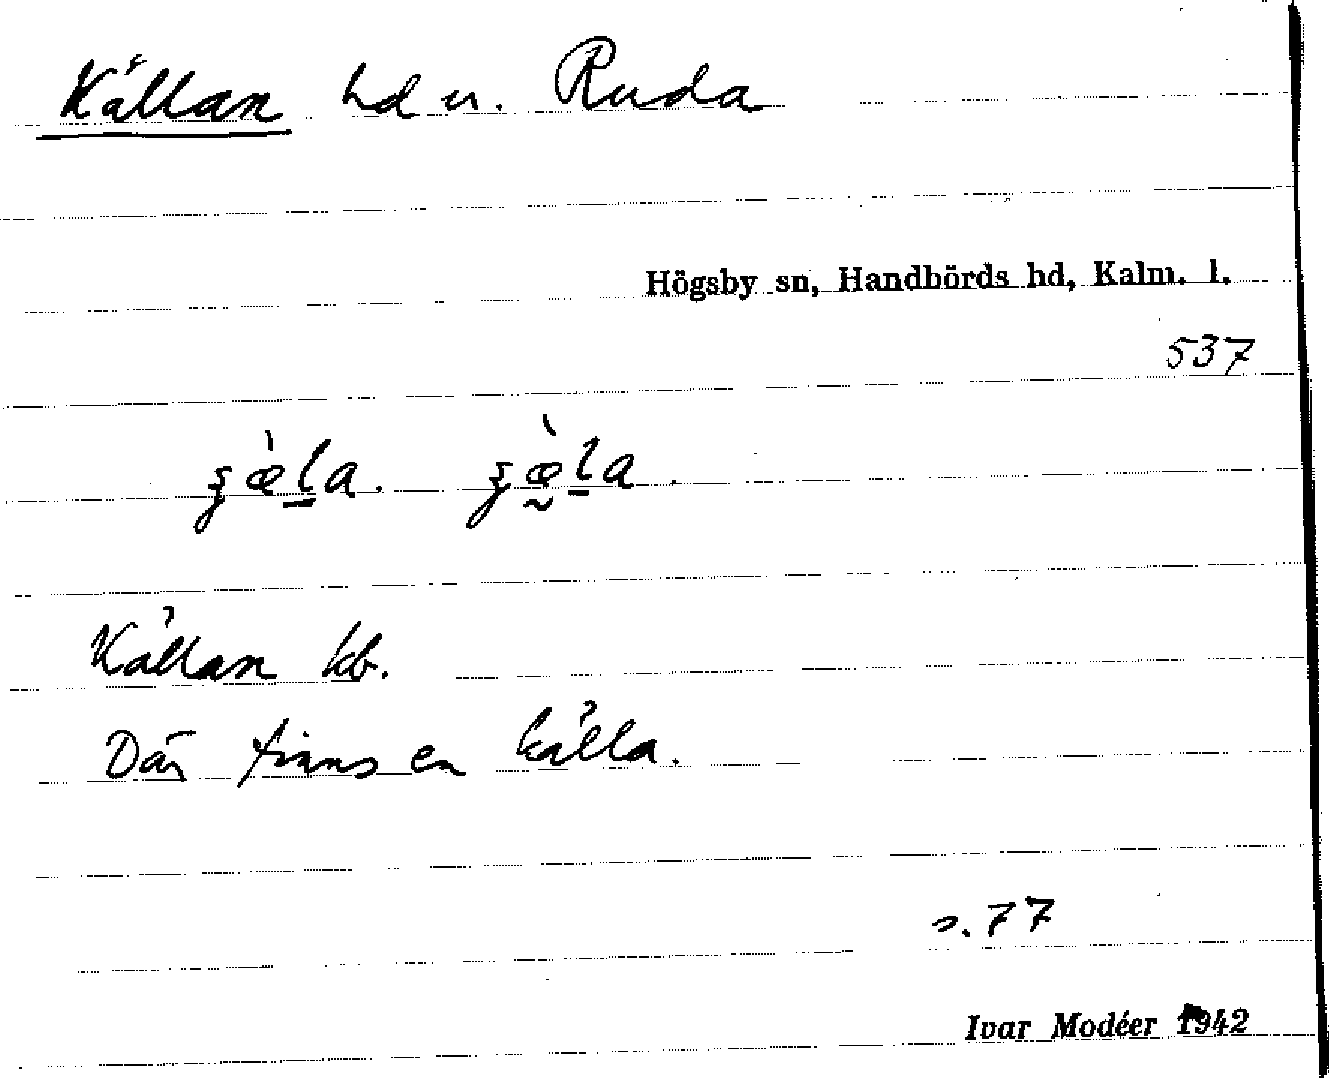 Källan hd u. Ruda
Högsby sn, Handbörds hd, Kalm. l.
537
Källan kb.
Där finns en källa.
s. 77
Ivar Modéer 1942